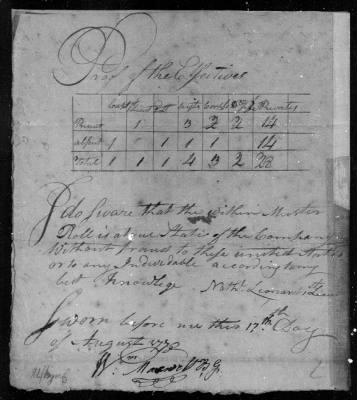 Proof of the Effectives
Capt Lieut Ens Sergts Corpls D & F Privates
Present 1 3 2 2 14
absent 1 1 1 1 14
Total 1 1 1 4 3 2 28
I do Sware that the within Muster
Roll is a true State of the Company
Without fraud to these united States
or to any Individable according to my
best Knowlege Nathl Leonard Lieut
Sworn before me this 17th Day
of August 1778
Wm Maxwell B G